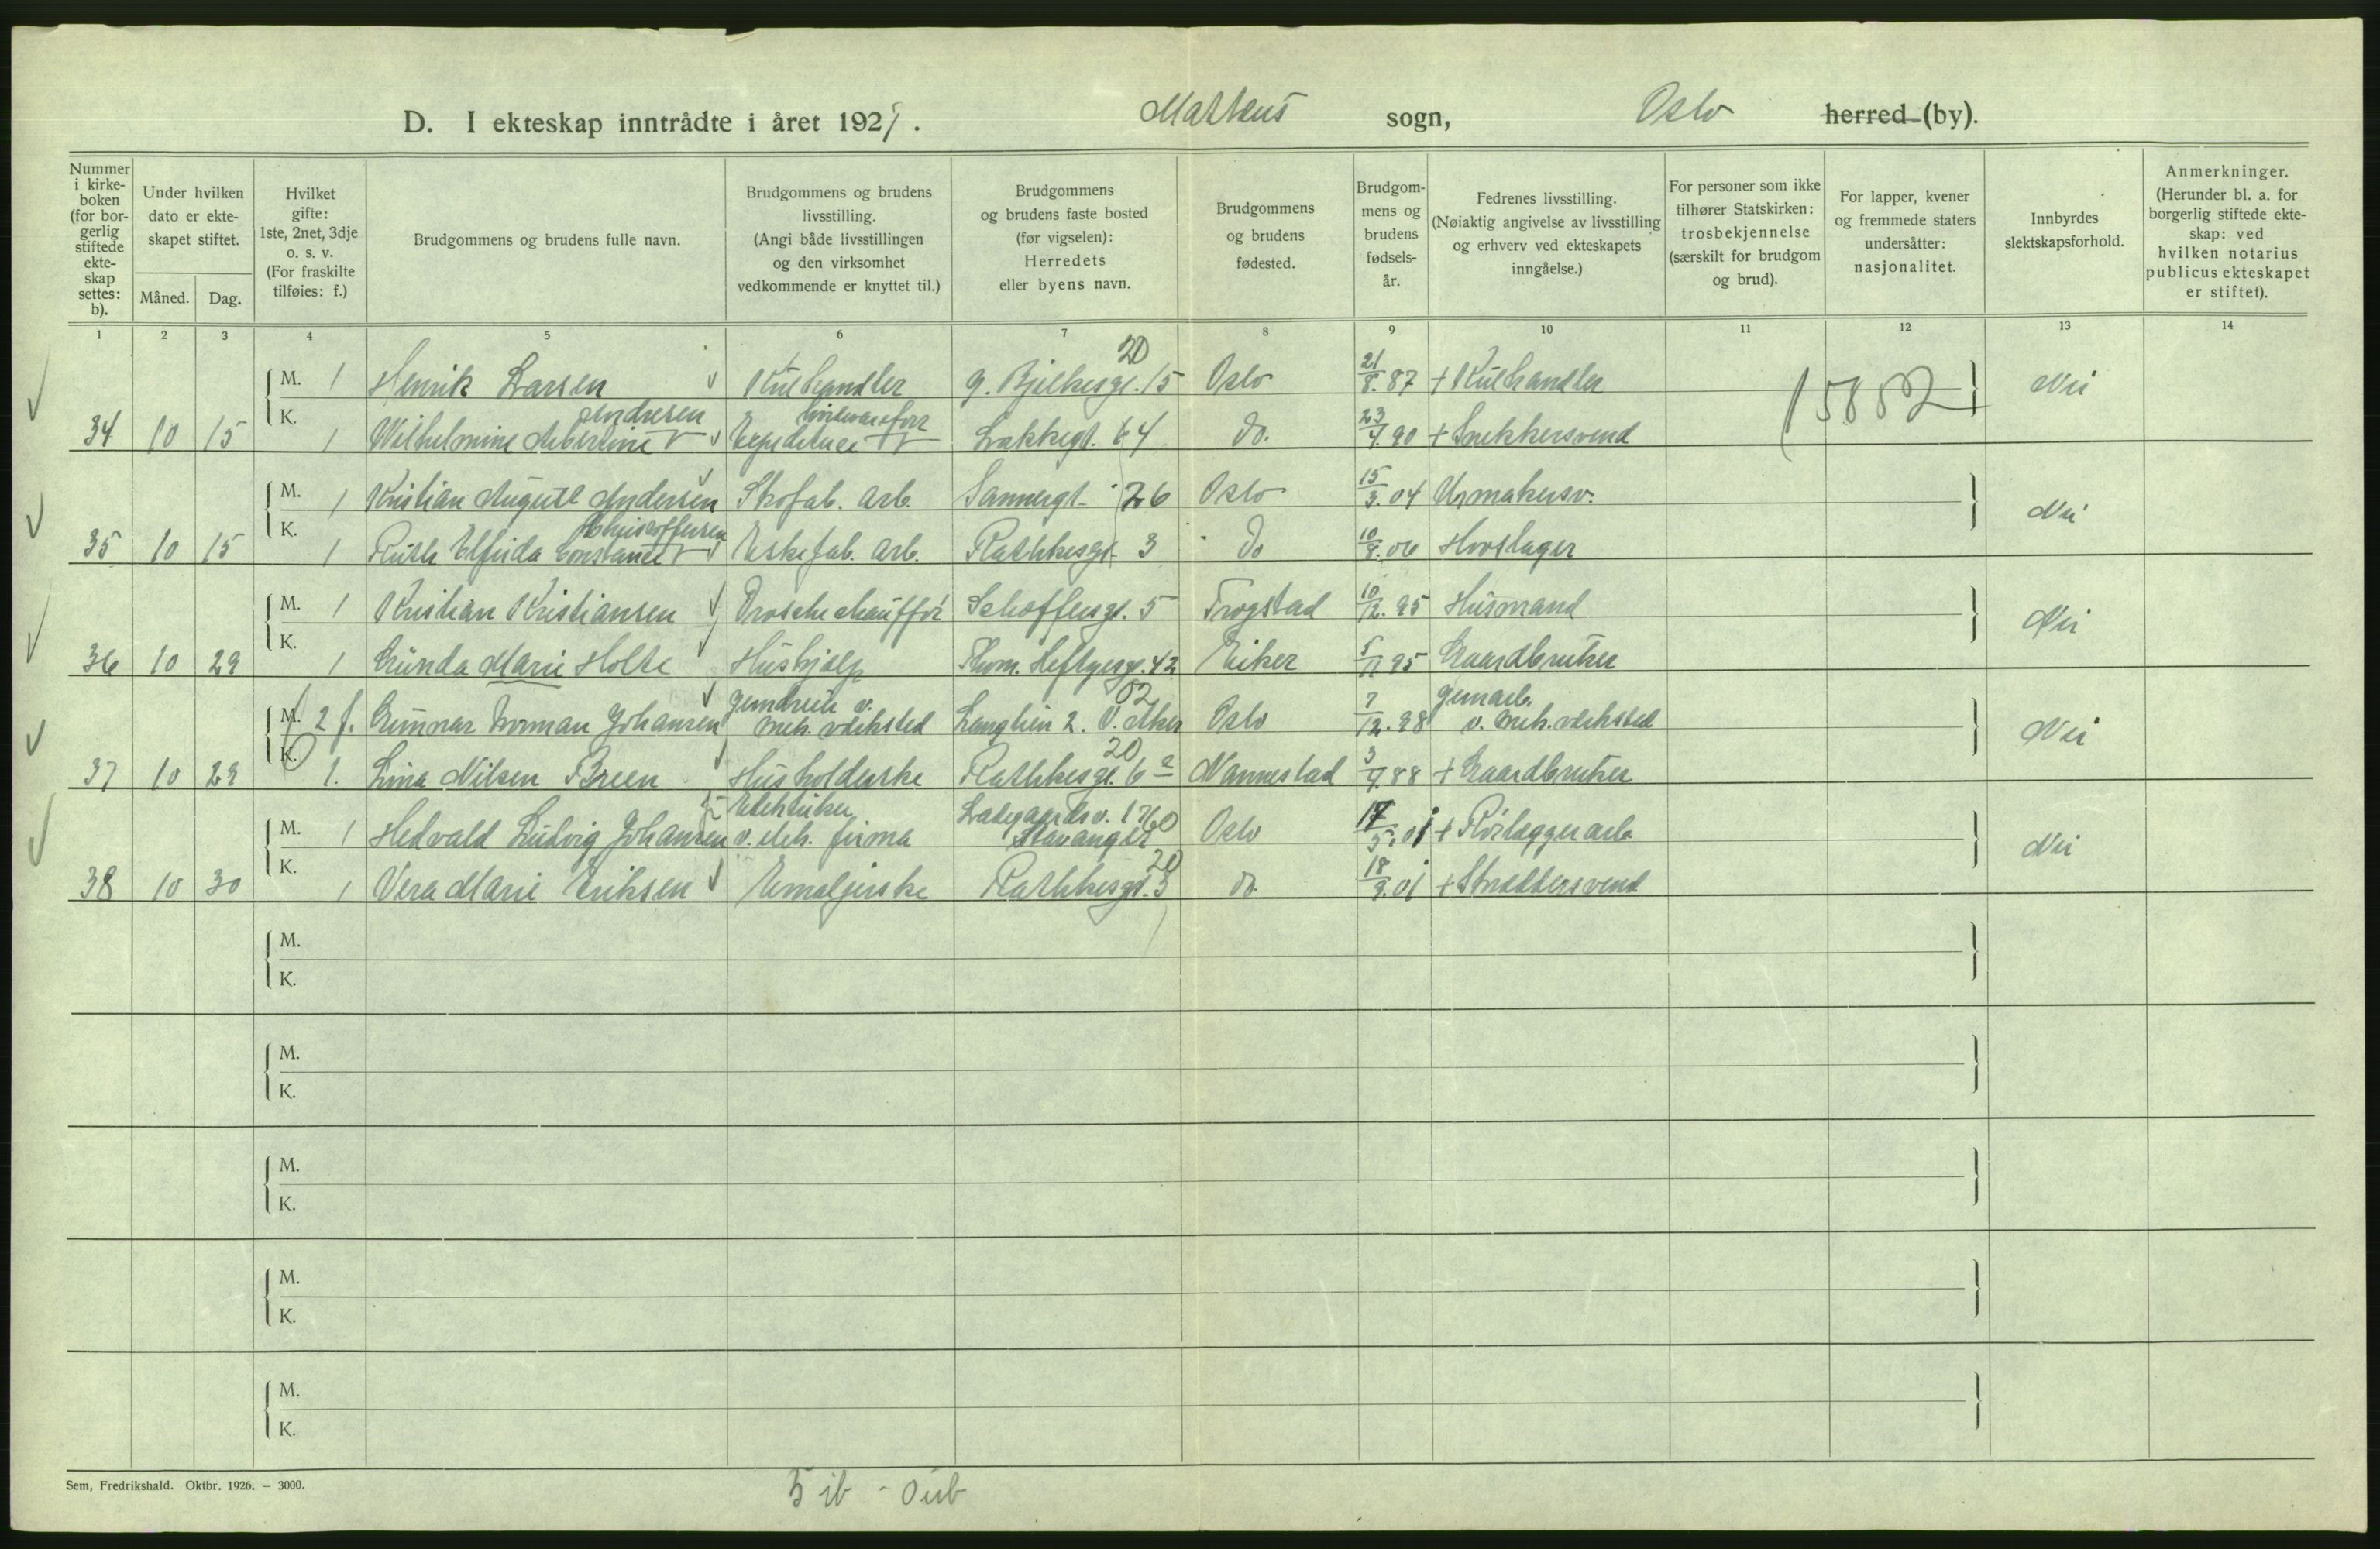 D. I ekteskap inntrådte i året 1927. Matteus sogn, Oslo herred (by).
Nummer i kirke-boken (for bor-gerlig stiftede ekte-skap settes: b).
Under hvilken dato er ekte-skapet stiftet.
Måned. Dag.
Hvilket gifte: 1ste, 2net, 3dje o. s. v. (For fraskilte tilføies: f.)
Brudgommens og brudens fulle navn.
Brudgommens og brudens livsstilling. (Angi både livsstillingen og den virksomhet vedkommende er knyttet til.)
Brudgommens og brudens faste bosted (før vigselen): Herredets eller byens navn.
Brudgommens og brudens fødested.
Brudgom-mens og brudens fødsels-år.
Fedrenes livsstilling. (Nøiaktig angivelse av livsstilling og erhverv ved ekteskapets inngåelse.)
For personer som ikke tilhører Statskirken: trosbekjennelse (særskilt for brudgom og brud).
For lapper, kvener og fremmede staters undersåtter: nasjonalitet.
Innbyrdes slektskapsforhold.
Anmerkninger. (Herunder bl. a. for borgerlig stiftede ekte-skap: ved hvilken notarius publicus ekteskapet er stiftet).
1 2 3 4 5 6 7 8 9 10 11 12 13 14
20
M. 1 Henrik Larsen Kulhandler g. Bjelkesgt. 15 Oslo 21/8. 87 + Kulhandler 15852 Nei
Andresen
34 10 15 K. 1 Wilhelmine Albertine Lakkegt. 64 do. 23/4. 90 + Snekkersvend
M. 1 Kristian August Andersen Skofab. arb. Sannergt. 26 Oslo 15/3. 04 Urmakersv. Nei
Christoffersen
35 10 15 K. 1 Ruth Elfrida Constance Eskefab. arb. Rathkesgt. 3 do 10/8. 06 Hovslager
M. 1 Kristian Kristiansen Droschechauffør Schoffersgt. 5 Trøgstad 10/12. 95 Husmand Nei
36 10 29 K. 1 Gunda Marie Holte Hushjælp Thom. Heftyesgt. 42 Eiker 5/11 95 Gaardbruker
Jerndreier v. 02 Jernarb.
M. 2 f. Gunnar Norman Johansen mek. verksted Langlien 2. V. Aker Oslo 7/12. 98 v. mek. verksted Nei
20
37 10 29 K. 1. Lina Nilsen Breen Husholderske Rathkesgt. 6 Nannestad 3/4. 88 + Gaardbruker
Elektriker Ladegaardsv. 1760
M. 1 Hedvald Ludvig Johansen v. elek. firma Stavanger Oslo 17/5. 01 + Rørlæggerarb Nei
20
38 10 30 K. 1 Vera Marie Eriksen Emaljerske Rathkesgt. 3 do. 18/9. 01 + Skræddersvend
M.
K.
M.
K.
M.
K.
M.
K.
M.
K.
Sem, Fredrikshald. Oktbr. 1926. — 3000.
5 ib - 0 ub